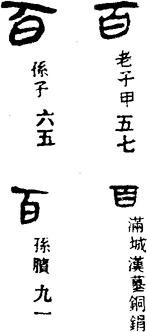 百
老子甲五七
百
係子六五
百
滿城漢墓銅鋗
百
孫臏九一